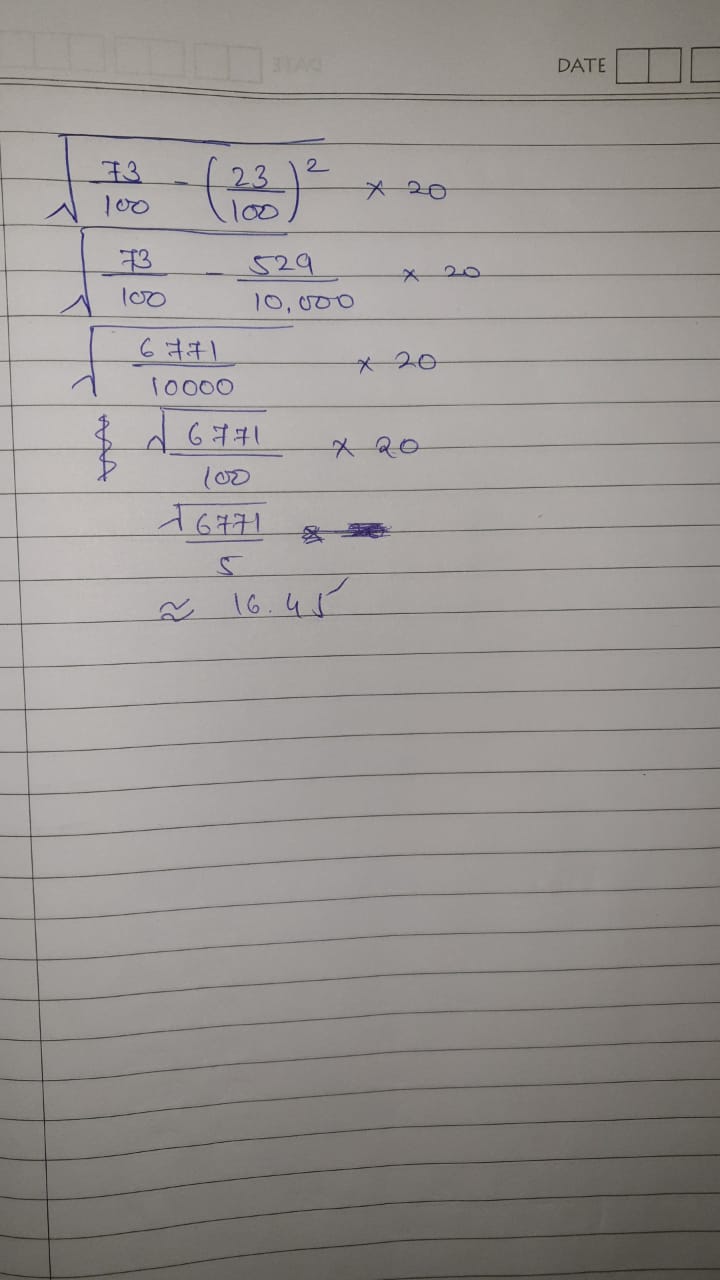 DATE
√ 73/100 - (23/100)² × 20
√ 73/100 - 529/10,000 × 20
√ 6771/10000 × 20
√6771/100 × 20
√6771/5
≈ 16.45